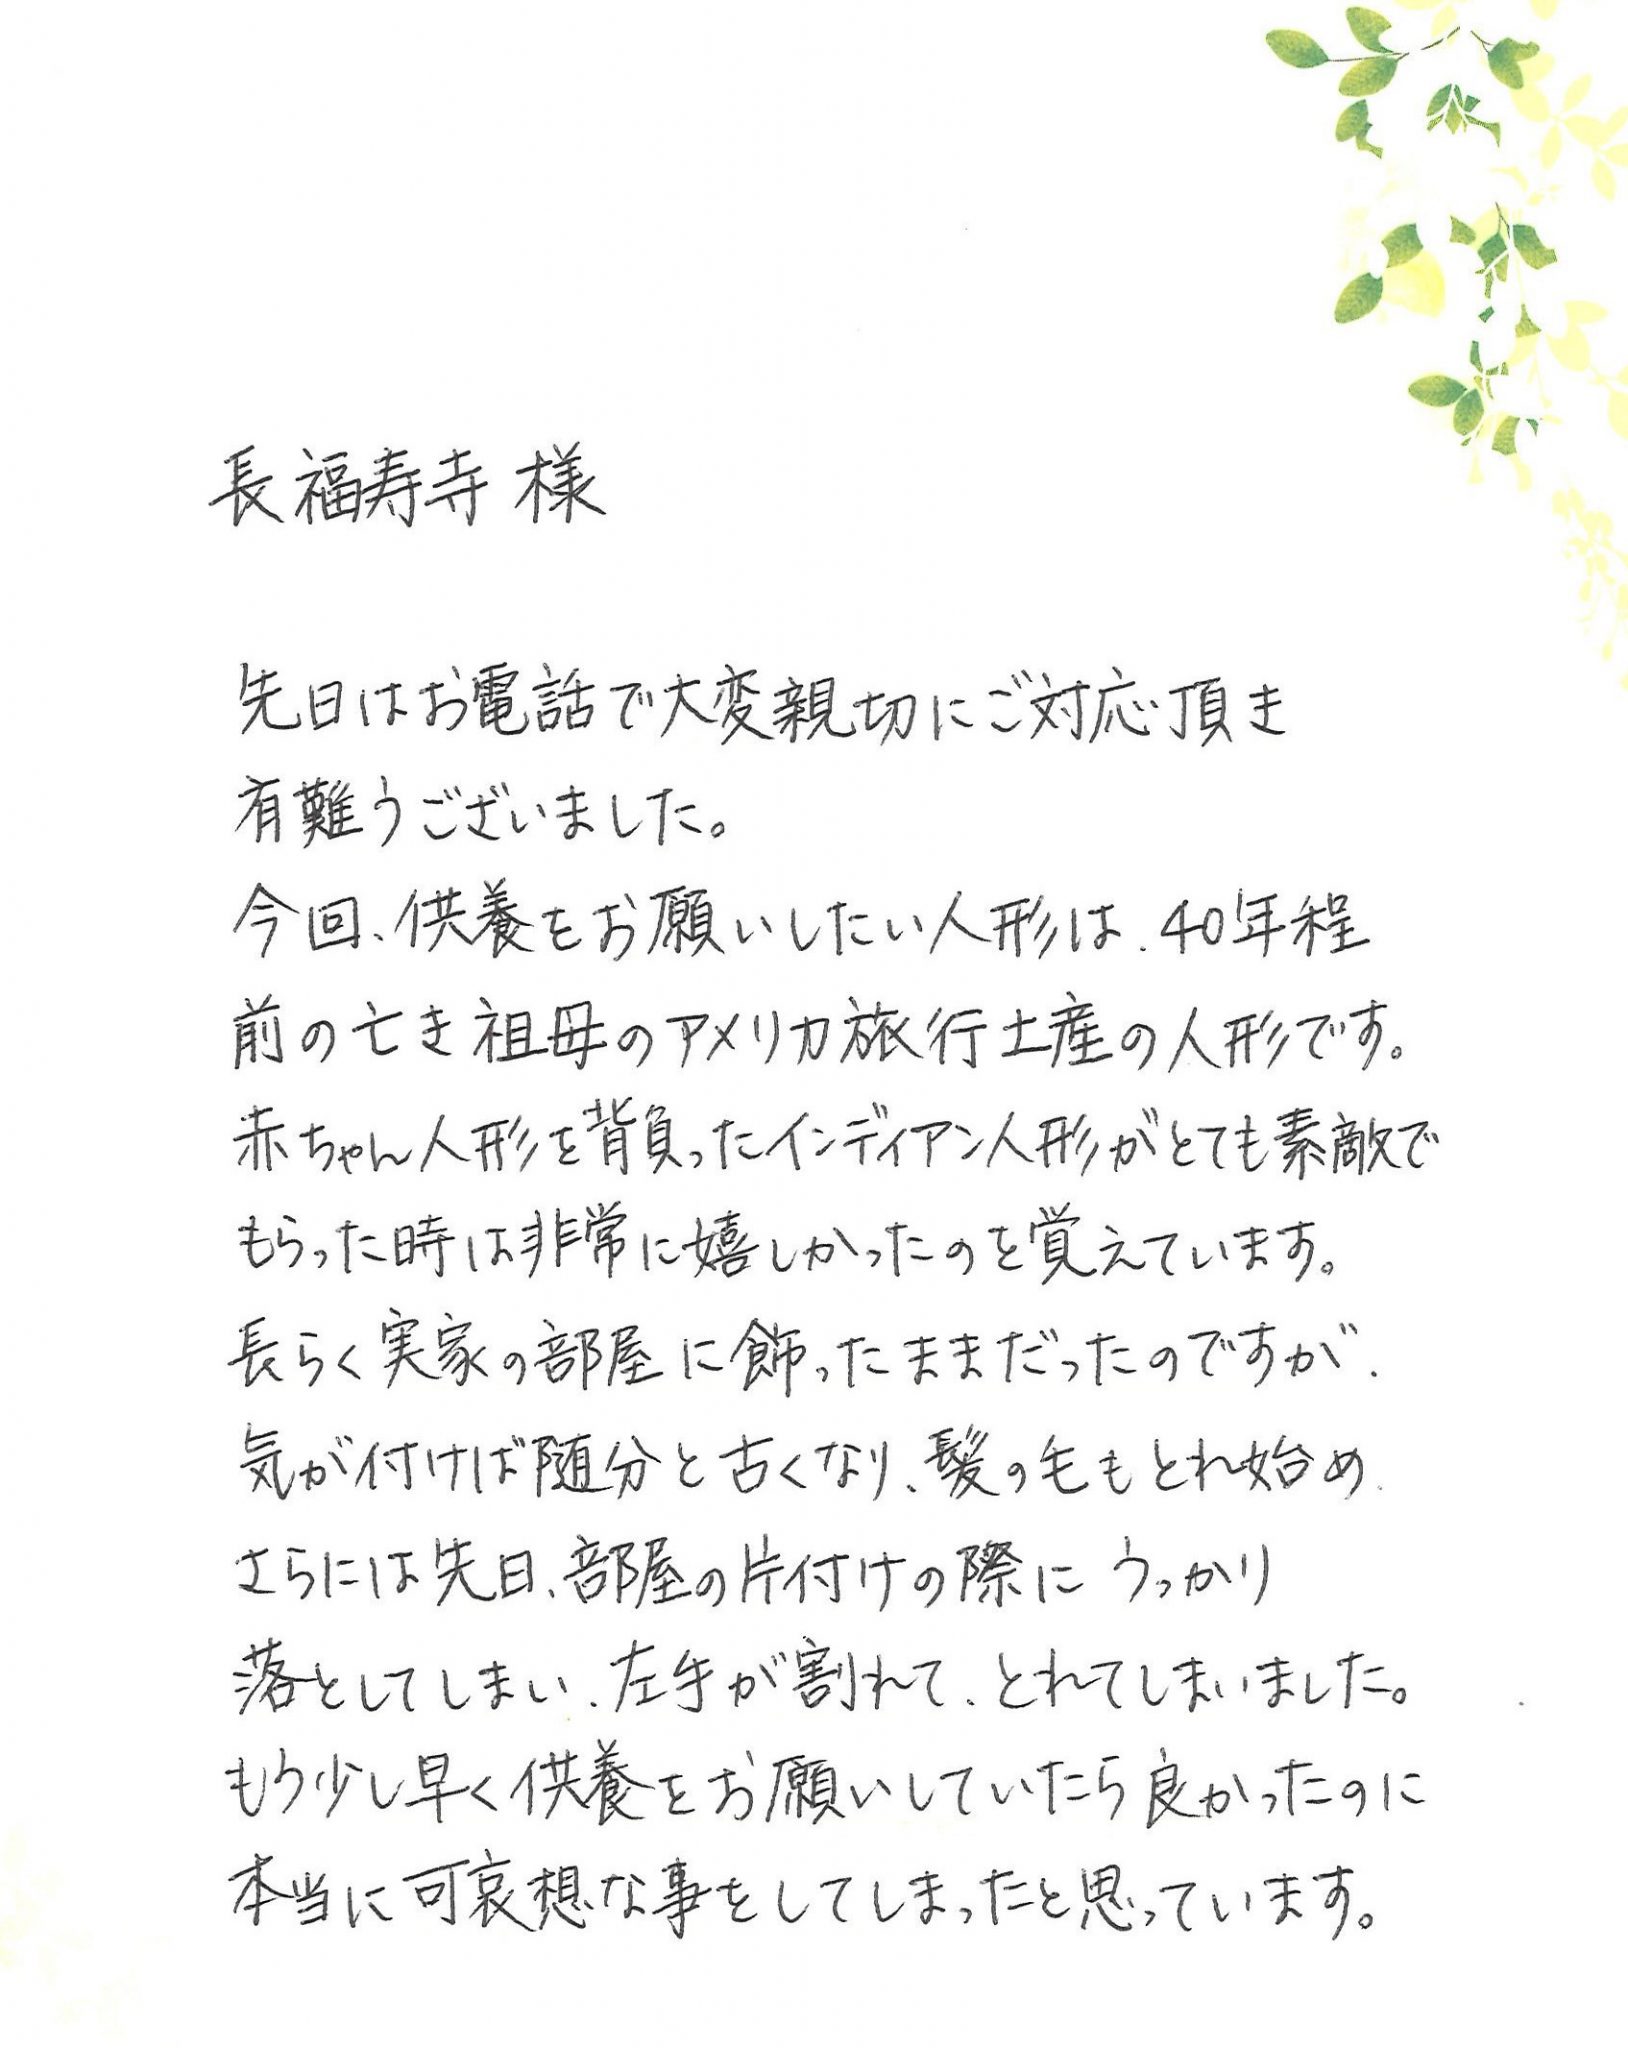 長福寿寺 様
先日はお電話で大変親切にご対応頂き
有難うございました。
今回、供養をお願いしたい人形は、40年程
前の亡き祖母のアメリカ旅行土産の人形です。
赤ちゃん人形を背負ったインディアン人形がとても素敵で
もらった時は非常に嬉しかったのを覚えています。
長らく実家の部屋に飾ったままだったのですが、
気が付けば随分と古くなり、髪の毛もとれ始め、
さらには先日、部屋の片付けの際にうっかり
落としてしまい、左手が割れて、とれてしまいました。
もう少し早く供養をお願いしていたら良かったのに
本当に可哀想な事をしてしまったと思っています。